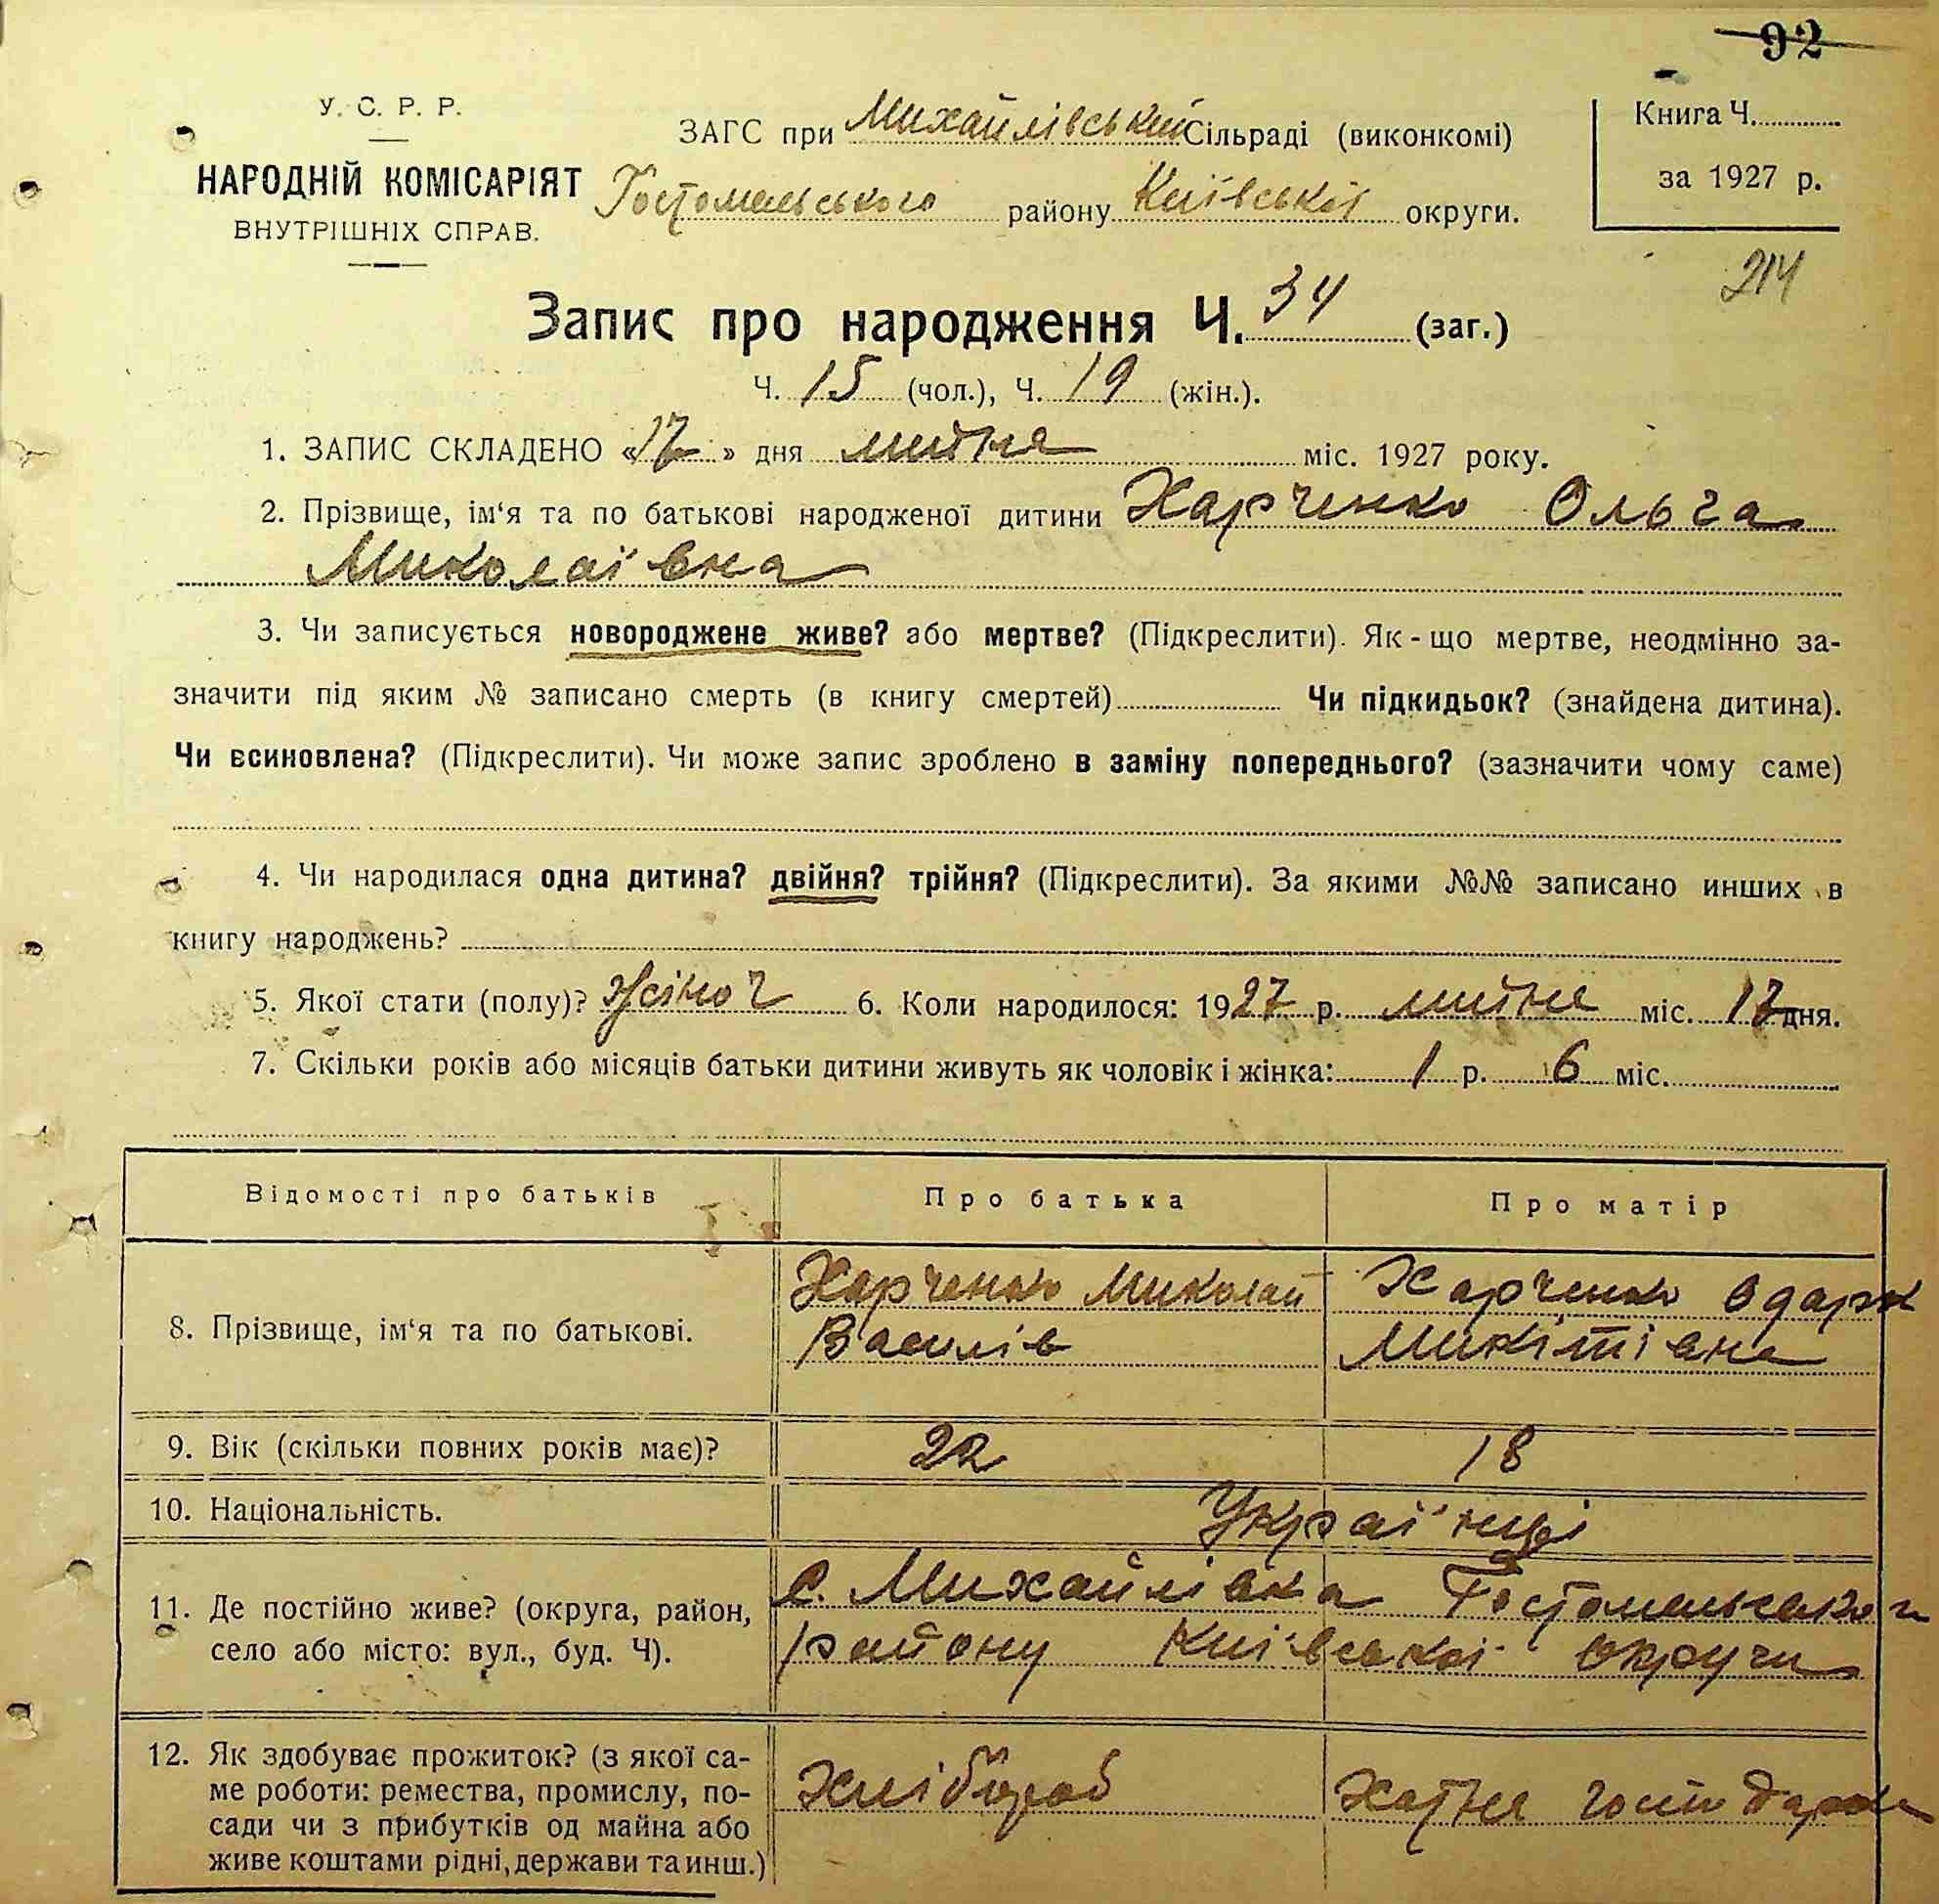 92
У. С. Р. Р.
НАРОДНІЙ КОМІСАРІЯТ
ВНУТРІШНІХ СПРАВ.
ЗАГС при Михайлівський Сільраді (виконкомі)
Гостомельського району Київської округи.
Книга Ч.
за 1927 р.
214
Запис про народження Ч. 34 (заг.)
Ч. 15 (чол.), Ч. 19 (жін.).
1. ЗАПИС СКЛАДЕНО «17» дня липня міс. 1927 року.
2. Прізвище, ім‘я та по батькові народженої дитини Харченко Ольга
Миколаївна
3. Чи записується новороджене живе? або мертве? (Підкреслити). Як-що мертве, неодмінно за-
значити під яким № записано смерть (в книгу смертей) Чи підкидьок? (знайдена дитина).
Чи всиновлена? (Підкреслити). Чи може запис зроблено в заміну попереднього? (зазначити чому саме)
4. Чи народилася одна дитина? двійня? трійня? (Підкреслити). За якими №№ записано инших в
книгу народжень?
5. Якої стати (полу)? жіноч 6. Коли народилося: 1927 р. липня міс. 17 дня.
7. Скільки років або місяців батьки дитини живуть як чоловік і жінка: 1 р. 6 міс.
Відомості про батьків Про батька Про матір
8. Прізвище, ім‘я та по батькові.
Харченко Миколай
Василів
Харченко Одарк
Микітівна
9. Вік (скільки повних років має)? 22 18
10. Національність. Українці
11. Де постійно живе? (округа, район,
село або місто: вул., буд. Ч).
с. Михайлівка Гостомельськог
району Київської округи
12. Як здобуває прожиток? (з якої са-
ме роботи: ремества, промислу, по-
сади чи з прибутків од майна або
живе коштами рідні, держави та инш.)
Хлібороб
Хатня господарка